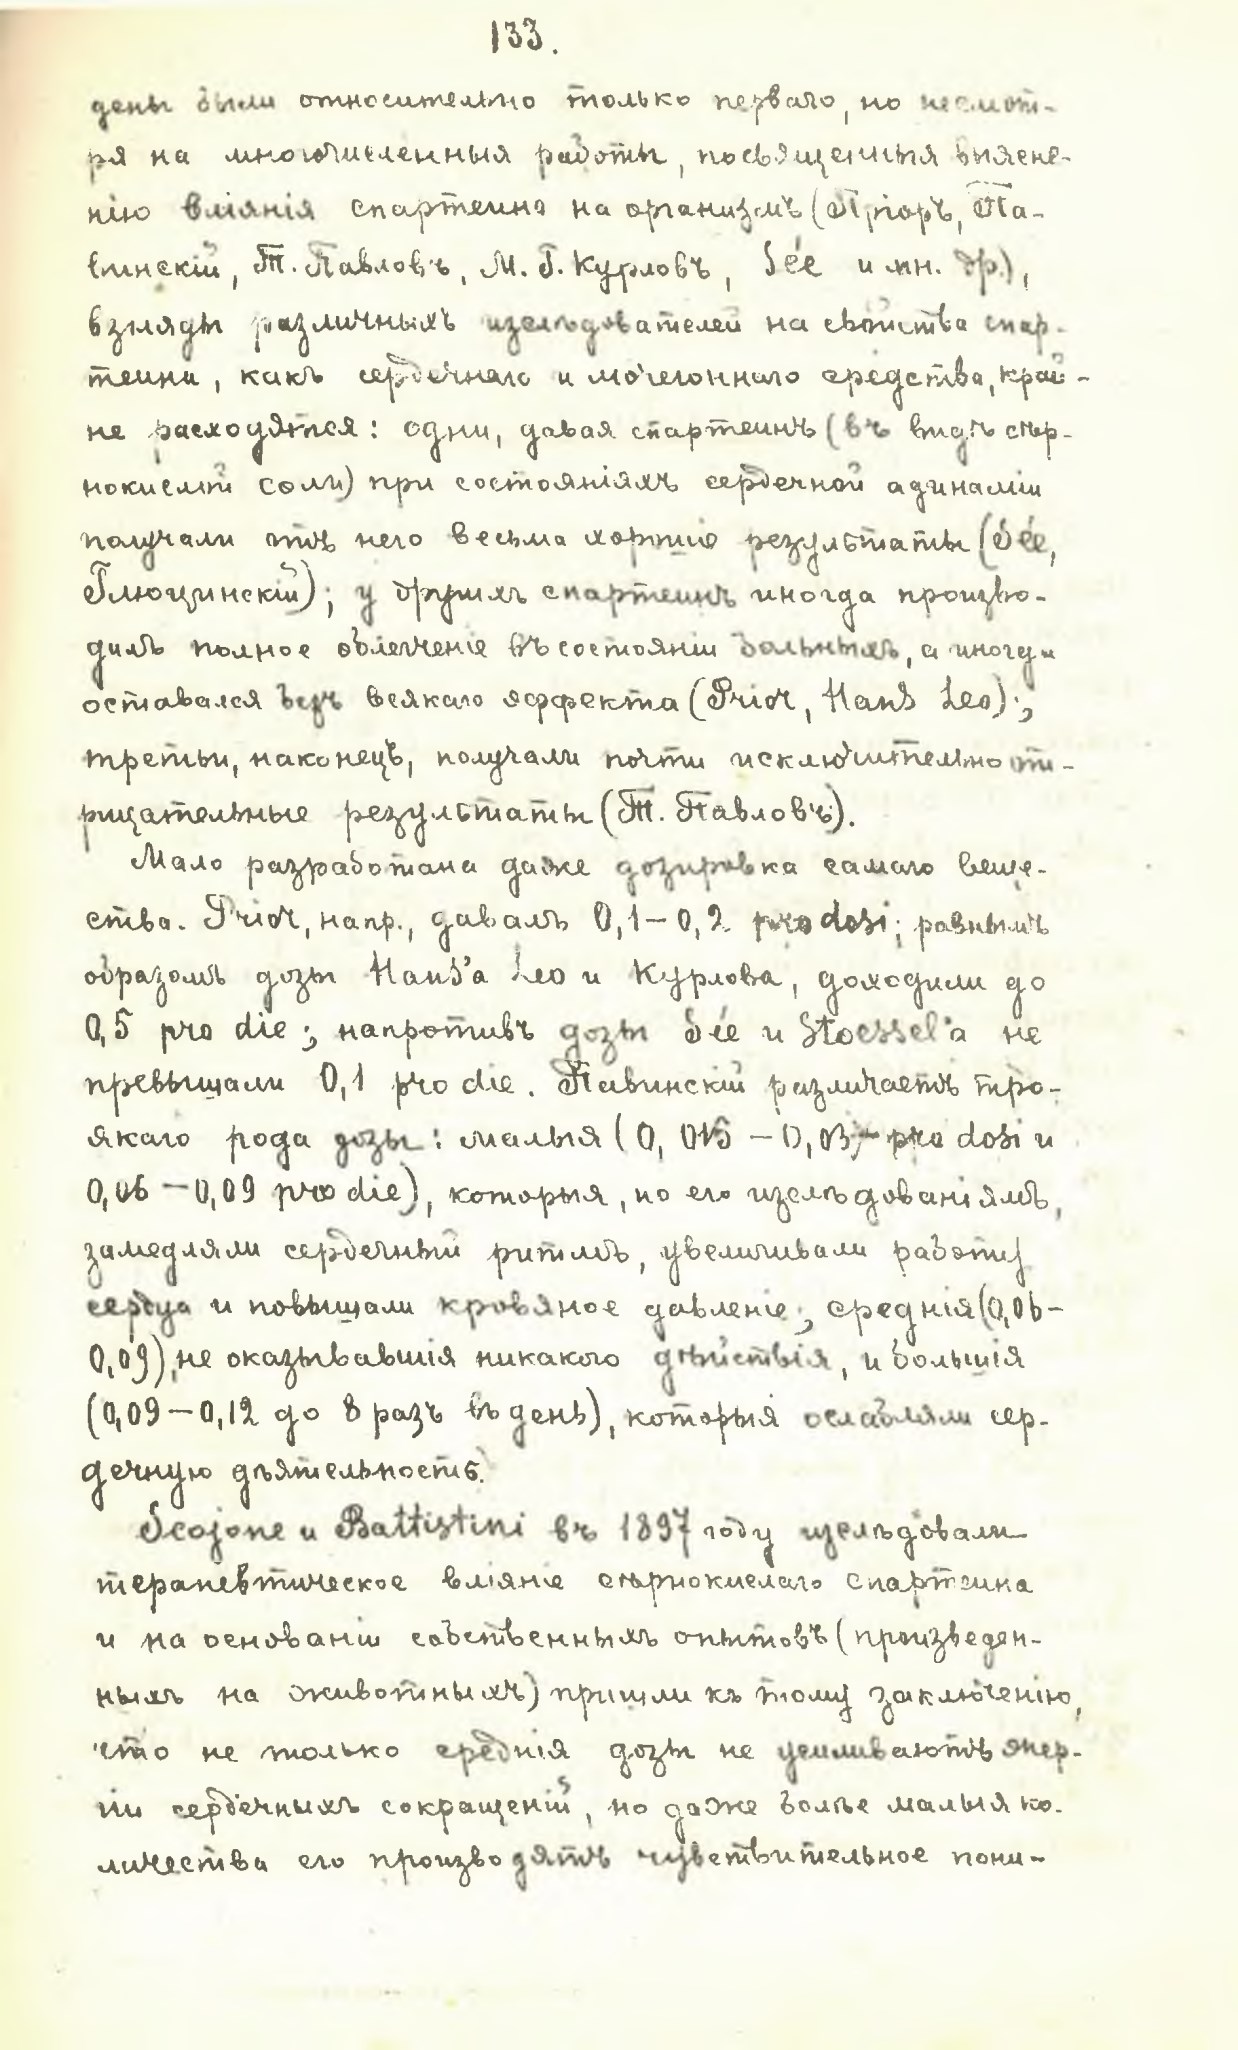 133.
дены были относительно только перваго, но несмот-
ря на многочисленныя работы, посвященныя выясне-
нію вліянія спартеина на организмъ (Пріоръ, Па-
винскій, Т. Павловъ, М. Г. Курловъ, Sée и мн. др.),
взгляды различныхъ изслѣдователей на свойства спар-
теина, какъ сердечнаго и мочегоннаго средства, край-
не расходятся: одни, давая спартеинъ (въ видѣ сѣр-
нокислой соли) при состояніяхъ сердечной адинаміи
получали отъ него весьма хорошіе результаты (Sée,
Глюцинскій); у другихъ спартеинъ иногда произво-
дилъ полное облегченіе въ состояніи больныхъ, а иногда
оставался безъ всякаго эффекта (Prior, Hans Leo);
третьи, наконецъ, получали почти исключительно от-
рицательные результаты (Т. Павловъ).
Мало разработана даже дозировка самаго веще-
ства. Prior, напр., давалъ 0,1-0,2 pro dosi; равнымъ
образомъ дозы Hans'a Leo и Курлова, доходили до
0,5 pro die; напротивъ дозы Sée и Stoessel'a не
превышали 0,1 pro die. Павинскій различаетъ тро-
якаго рода дозы: малыя (0,015 - 0,03 pro dosi и
0,06 - 0,09 pro die), которыя, по его изслѣдованіямъ,
замедляли сердечный ритмъ, увеличивали работу
сердца и повышали кровяное давленіе; среднія (0,06-
0,09), не оказывавшія никакого дѣйствія, и большія
(0,09-0,12 до 8 разъ въ день), которыя ослабляли сер-
дечную дѣятельность.
Scojone и Battistini въ 1897 году изслѣдовали
терапевтическое вліяніе сѣрнокислаго спартеина
и на основаніи собственныхъ опытовъ (произведен-
ныхъ на животныхъ) пришли къ тому заключенію,
что не только среднія дозы не усиливаютъ энер-
гіи сердечныхъ сокращеній, но даже болѣе малыя ко-
личества его производятъ чувствительное пони-